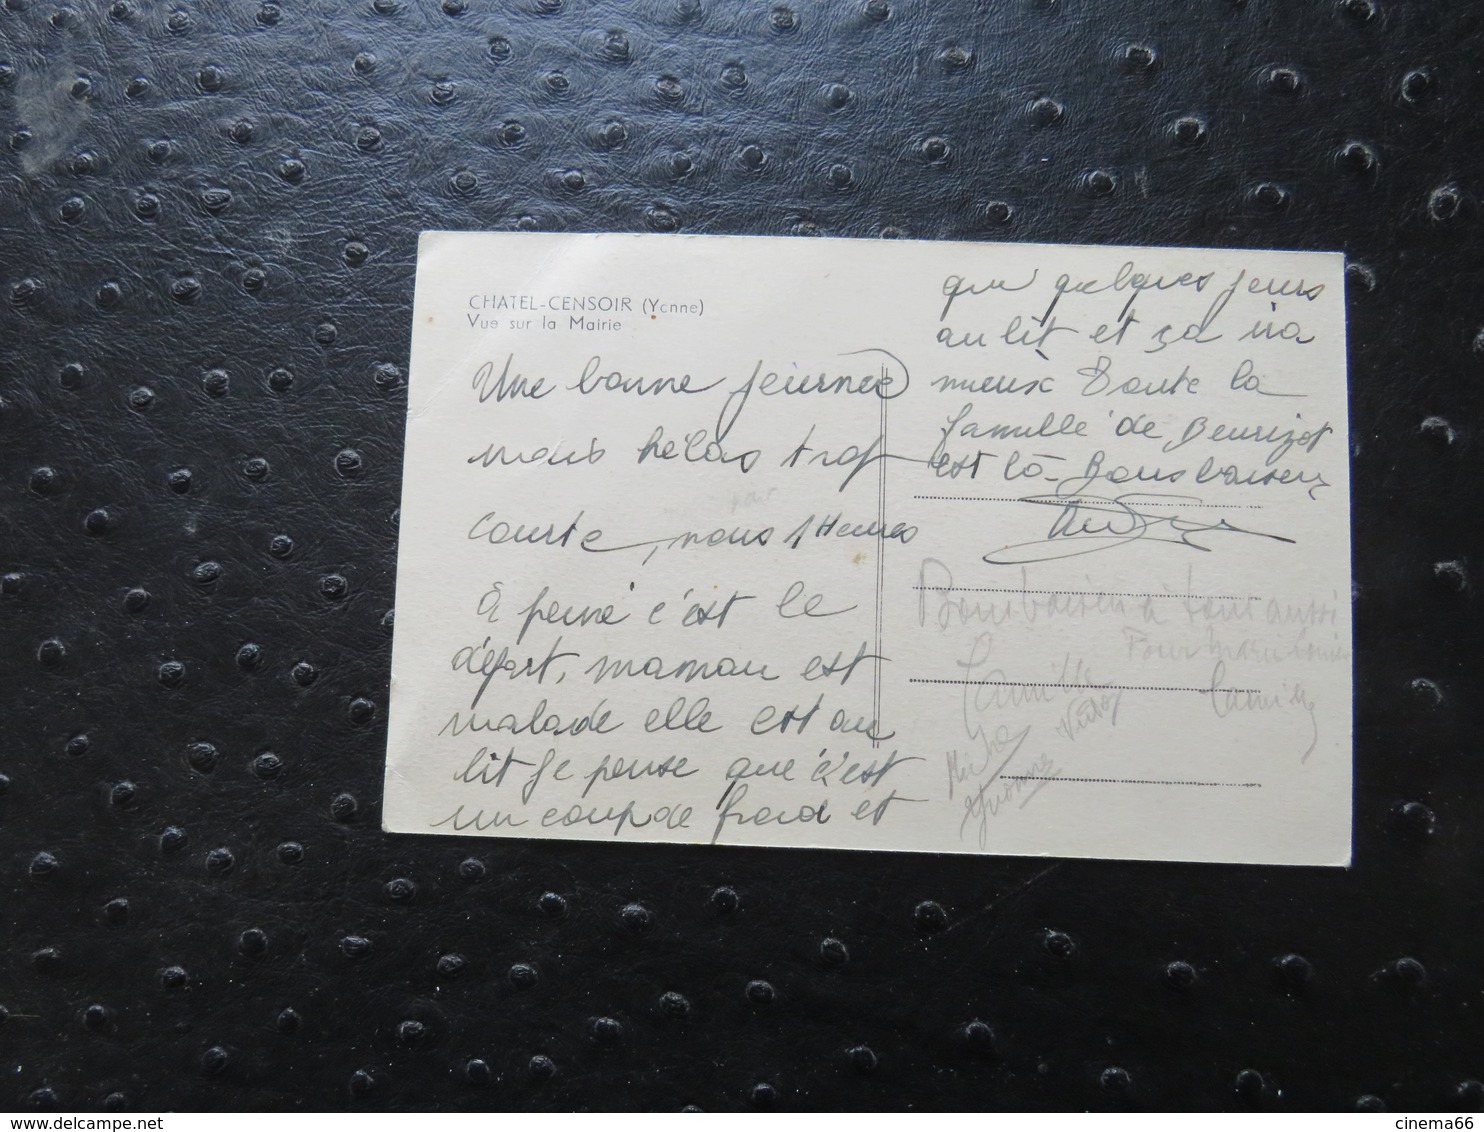 CHATEL-CENSOIR (Yonne)
Vue sur la Mairie
Une bonne journée
mais hélas trop
courte, nous 1 Heures
à peine c'est le
départ, maman est
malade elle est au
lit je pense que c'est
un coup de froid et
que quelques jours
au lit et ça ira
mieux Toute la
famille de Beurizot
est là - Bons baisers
Bons baisers à tous aussi
pour
Camille
Victor
Yvonne
delcampe.net
cinema66